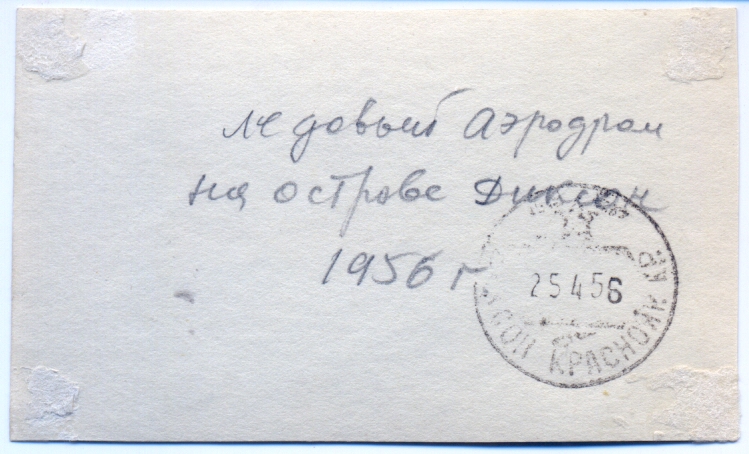 ледовый Аэродром
на острове Диксон
1956 г
25 4 56
КСОН КРАСНОЯР КР